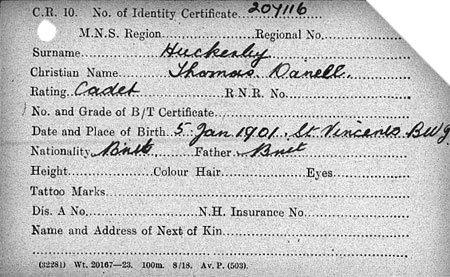 C.R. 10. No. of Identity Certificate 207116
M.N.S. Region Regional No.
Surname Huckerby
Christian Name Thomas Danell
Rating Cadet R.N.R. No.
No. and Grade of B/T Certificate
Date and Place of Birth 5 Jan 1901. St. Vincents B.W.I.
Nationality Brit Father Brit
Height Colour Hair Eyes
Tattoo Marks
Dis. A No. N.H. Insurance No.
Name and Address of Next of Kin
(32281) Wt. 20167—23. 100m. 8/18. Av. P. (503).